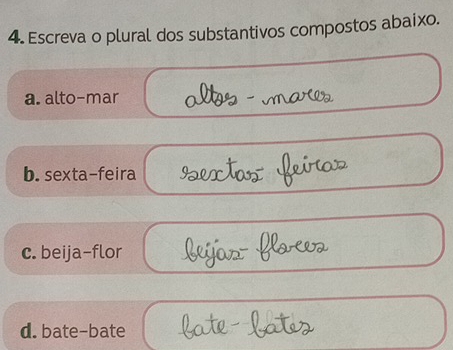 4. Escreva o plural dos substantivos compostos abaixo.
a. alto-mar altos - mares
b. sexta-feira sextas- feiras
c. beija-flor beijas- flores
d. bate-bate bate- bates